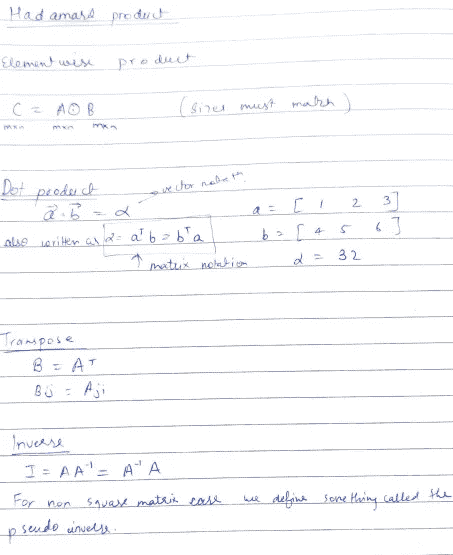 Hadamard product
Elementwise product
C = A⊙B (sizes must match)
mxn mxn mxn
Dot product → vector notatn.
a⃗·b⃗ = α a = [ 1 2 3]
also written as α = aᵀb = bᵀa b = [ 4 5 6]
↑ matrix notation α = 32
Transpose
B = Aᵀ
Bij = Aji
Inverse
I = AA⁻¹ = A⁻¹A
For non square matrix case we define something called the
pseudo inverse.